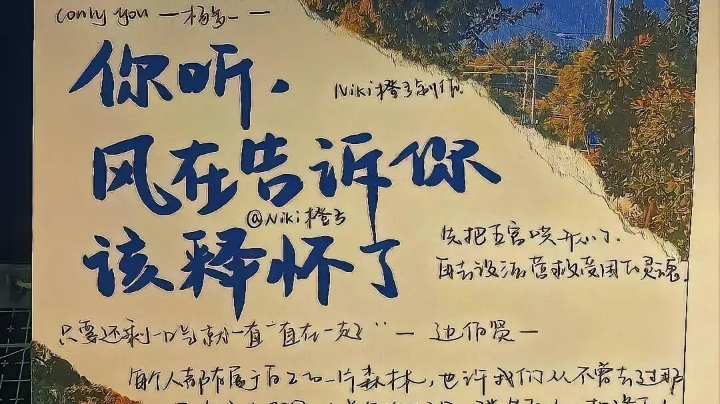 only you
你听,
Niki橙子制作
风在告诉你
@Niki橙子
该释怀了
先把五官哄开心了
再去设法营救受困的灵魂.
只要还剩一口气就一直"直在一起" — 边伯贤 —
每个人都有属于自己的一片森林,也许我们从不曾去过那